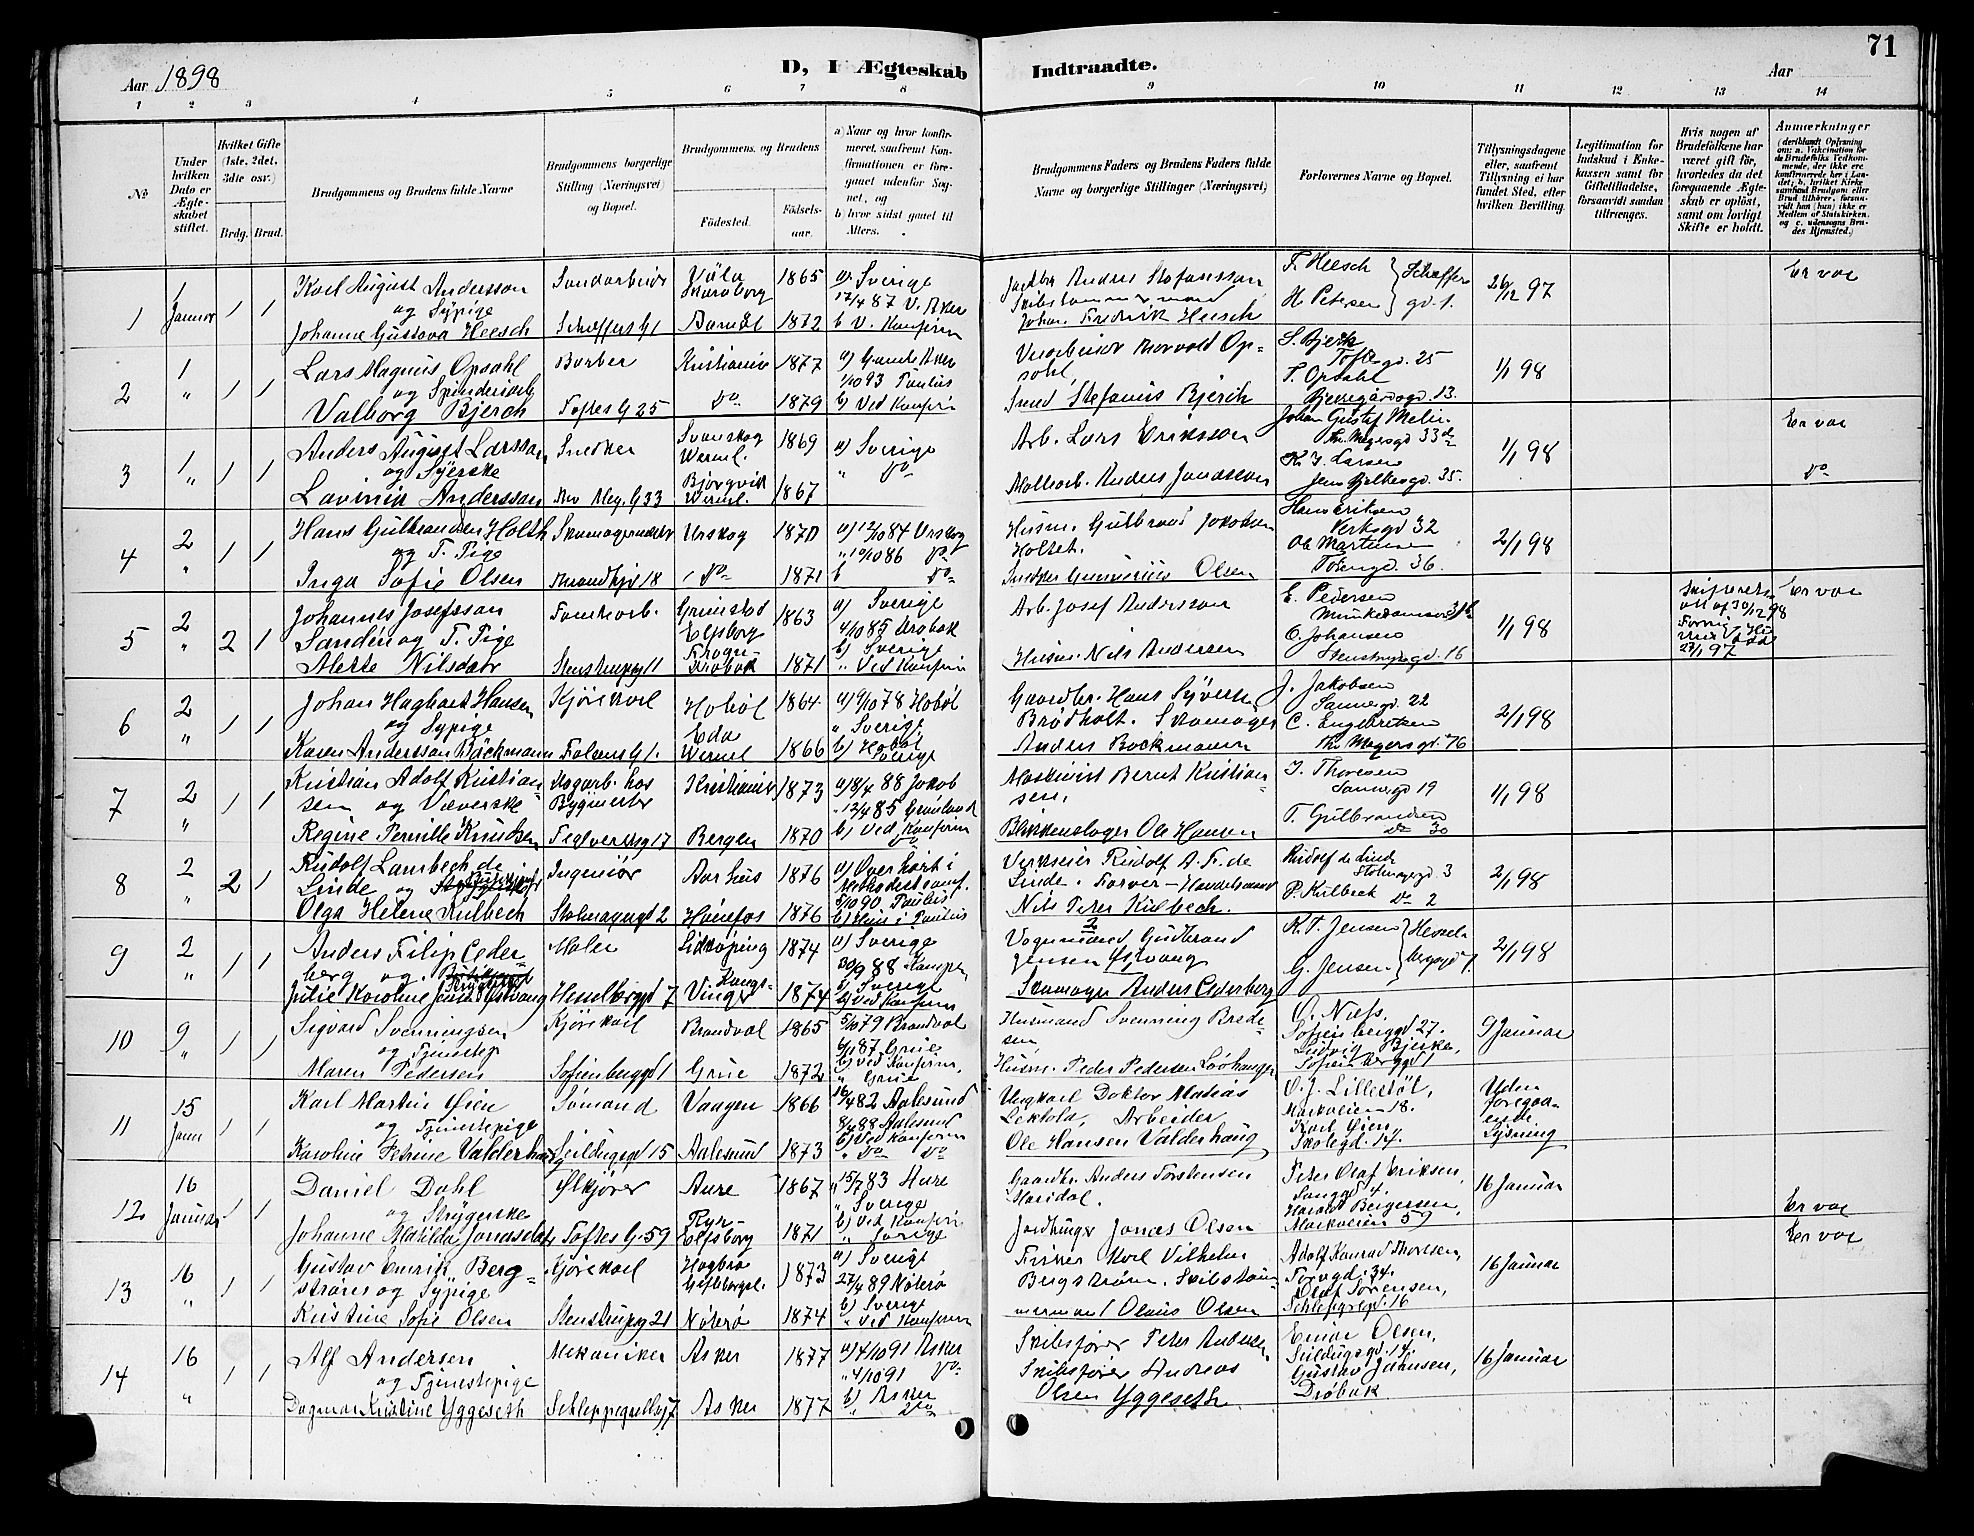 71
Aar 1898
D, I Ægteskab Indtraadte.
Aar
1 2 3 4 5 6 7 8 9 10 11 12 13 14
№
Under hvilken Dato er Ægteskabet stiftet.
Hvilket Gifte (1ste, 2det, 3die osv.)
Brdg. Brud.
Brudgommens og Brudens fulde Navne
Brudgommens borgerlige Stilling (Næringsvei) og Bopæl.
Brudgommens og Brudens
Fødested.
Fødselsaar.
a) Naar og hvor konfirmeret, saafremt Konfirmationen er foregaaet udenfor Sognet, og
b) hvor sidst gaaet til Alters.
Brudgommens Faders og Brudens Faders fulde Navne og borgerlige Stillinger (Næringsvei)
Forlovernes Navne og Bopæl.
Tillysningsdagene eller, saafremt Tillysning ei har fundet Sted, efter hvilken Bevilling.
Legitimation for Indskud i Enkekassen samt for Giftetilladelse, forsaavidt saadan tiltrænges.
Hvis nogen af Brudefolkene har været gift før, hvorledes da det foregaaende Ægteskab er opløst, samt om lovligt Skifte er holdt.
Anmærkninger
1 1 Januar 1 1
Karl August Andersson
og Sypige
Johanne Gustava Heesch
Schæffers G 1
1865
1872
a) Sverige
12/4 87 V. Aker
b) V. Konfirm
Anders Stefansson
Johan Fredrik Heesch
F. Heesch
H. Petersen
Schæffers gd. 1.
26/12 97
Er vac
2 1 " 1 1
Lars Magnus Opsahl
og Spinderiarb
Valborg Bjerch
Barber
Toftes G 25
Kristiania
do
1877
1879
a) Gamle Aker
1/10 93 Paulus
b) Ved Konfirm
Opsahl,
Smed Stefanus Bjerch
S. Bjerk
Toftesgd. 25
T. Opsahl
Bjerregårdsgd. 13.
1/1 98
3 1 " 1 1
Anders August Larsson
og Syerske
Lovinia Andersson
Snedker
Svanskog
Werml.
Bjørgvik
Werml.
1869
1867
a) Sverige
" do
Arb. Lars Eriksson
Anders Jonasson
Johan Gustaf Melin
Th. Meyersgd 33
K. J. Larsen
Jens Bjelkesgd. 35.
1/1 98
Er vac
do
4 2 " 1 1
Hans Gulbrandsen Holsth
og T. Pige
Inga Sofie Olsen
Skomagermester
Urskog
do
1870
1871
a) 12/10 84 Urskog
" 10/10 86 do
b) do
Husm. Gulbrand Jakobsen
Holset.
Snedker Gunnerius Olsen
Hans Eriksen
Verksgd 32
Ole Martinsen
Toiengd. 36.
2/1 98
5 2 " 2 1
Johannes Josefsson
Sandén og T. Pige
Mette Nilsdatr
Stenstrupsg 11
Grimstad
Elfsborg
Frogn
Drøbak
1863
1871
a) Sverige
4/10 85 Drøbak
b) Sverige
" Ved Konfirm
Arb. Josef Andersson
Husm. Nils Andersen
E. Pedersen
Munkedamsv
O. Johansen
Stenstrupsgd. 16
1/1 98
Er vac
6 2 " 1 1
Johan Hagbart Hansen
og Sypige
Karen Andersson Bäckmann
Kjørekarl
Hobøl
Eda
Werml
1864.
1866
a) 9/10 78 Hobøl
" Sverige
b) Hobøl
Sverige
Gaardbr. Hans Syvers
Brødholt. Skomager
Anders Bäckmann
J. Jakobsen
Sannergd. 22
C. Engebretsen
Th. Meyersgd. 76
2/1 98
7 2 " 1 1
Kristian Adolf Kristian-
sen og Væverske
Regine Pernille Knudsen
hos
Bygmester
Teglverksg 17
Kristiania
Bergen
1873
1870
a) 18/4 88 Jakob
" 12/4 85 Grønland
b) Ved Konfirm
do
Maskinist Bernt Kristian-
sen,
Blikkenslager Ole Hansen
J. Thoresen
Sannergd 19
T. Gulbrandsen
do 30
1/1 98
8 2 " 2 1
Rudolf Lambech de
Linde og
Olga Helene Kulbech
Ingeniør
Stolmagergd 2
Aarhus
Hønefos
1876
1876
a) Overhørt i
Methodistsamf.
/10 90 Paulus
b) Hun i Paulus
Rudolf A. F. de
Linde. Farver - Handelsmand
Nils Peter Kulbech.
Rudolf de Linde
Stolmagergd 3
P. Kulbeck do 2
2/1 98
9 2 " 1 1
Anders Filip Ceder-
berg og
Julie Karoline Jensen Østvang
Maler
Hesselbergsgd 7
Lidköping
Kongs-
Vinger
1874
1874
a) Sverige
30/9 88 Kampen
b) Sverige
b) Ved Konfirm
Vognmand Gudbrand
Jensen Østvang
Skomager Anders Cederberg
R. T. Jensen
G. Jensen
Hesselbergsgd 7.
2/1 98
10 9 " 1 1
Sigvard Svenningsen
og Tjenestep
Maren Pedersen
Kjørekarl
Sofienbergsgd 1
Brandval
Grue
1865
1872
5/10 79 Brandval
87 Grue
b) Ved Konfirm.
" Grue
Husmand Svenning Brede-
sen
Husm. Peder Pedersen Løvhaugen
O. Næss,
Sofienberggd 27.
Ludvig Bjerke,
Sofienberggd 1
9 Januar
11 15 Janu 1 1
Karl Martin Øien
og Tjenestepige
Karoline Petrine Valderhaug
Sømand
Seildugsgd 15
Vaagen
Aalesund
1866
1873
/4 82 Aalesund
8/4 88 Aalesund
b) Ved Konfirm
" do do
Ungkarl Doktor Matias
Arbeider
Ole Hansen Valderhaug
O. J. Lillestøl,
Markveien 18.
Karl Øien
Skolegd. 14.
Uden
foregaa-
ende
Lysning
12 16 Januar 1 1
Daniel Dahl
og Strygerske
Johanne Matilda Jonasdatr
Ølkjører
Toftes G. 59
Aure
Ryr
Elfsborg
1867
1871
" 15/7 83 Aure
" Sverige
b) Ved Konfirm
" Sverige
Gaardbr. Anders Torstensen
Jordbruger Jonas Olsen
Peter Olaf Eriksen,
Harald Bergersen,
Markveien 59
16 Januar
Er vac
13 16 " 1 1
Gustav Emrik Berg-
strøm og Sypige
Kristine Sofie Olsen
Kjørekarl
Stenstrupsg 21
Hogbro
Gefleborgsl.
Nøterø
1873
1874
a) Sverige
27/4 89 Nøterø
b) Sverige
" Ved Konfirm
Fisker Karl Vilhelm
Bergstrøm. Skibstøm-
mermand Olaus Olsen
Adolf Konrad Thoresen,
Torvgd. 34.
Olaf Sørensen,
Schleppegrelgd. 16
16 Januar
Er vac
14 16 " 1 1
Alf Andersen
og Tjenestepige
Dagmar Kristine Yggeseth
Mekaniker
Schleppegrellsg 7
Asker
Asker
1877
1877
a) 4/10 91 Asker
" 4/10 91 do
b) Asker
" do
Skibsfører Peter Andersen,
Skibsfører Andreas
Olsen Yggeseth.
Einar Olsen,
Seildugsgd. 14.
Gustav Johnsen,
Drøbak.
16 Januar